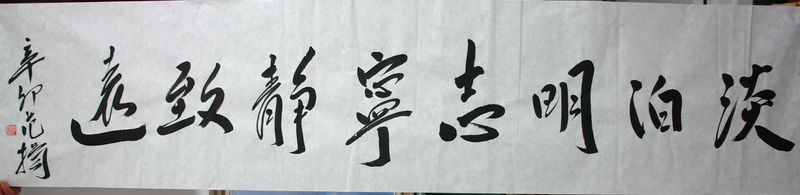 淡泊明志寧靜致遠
辛卯